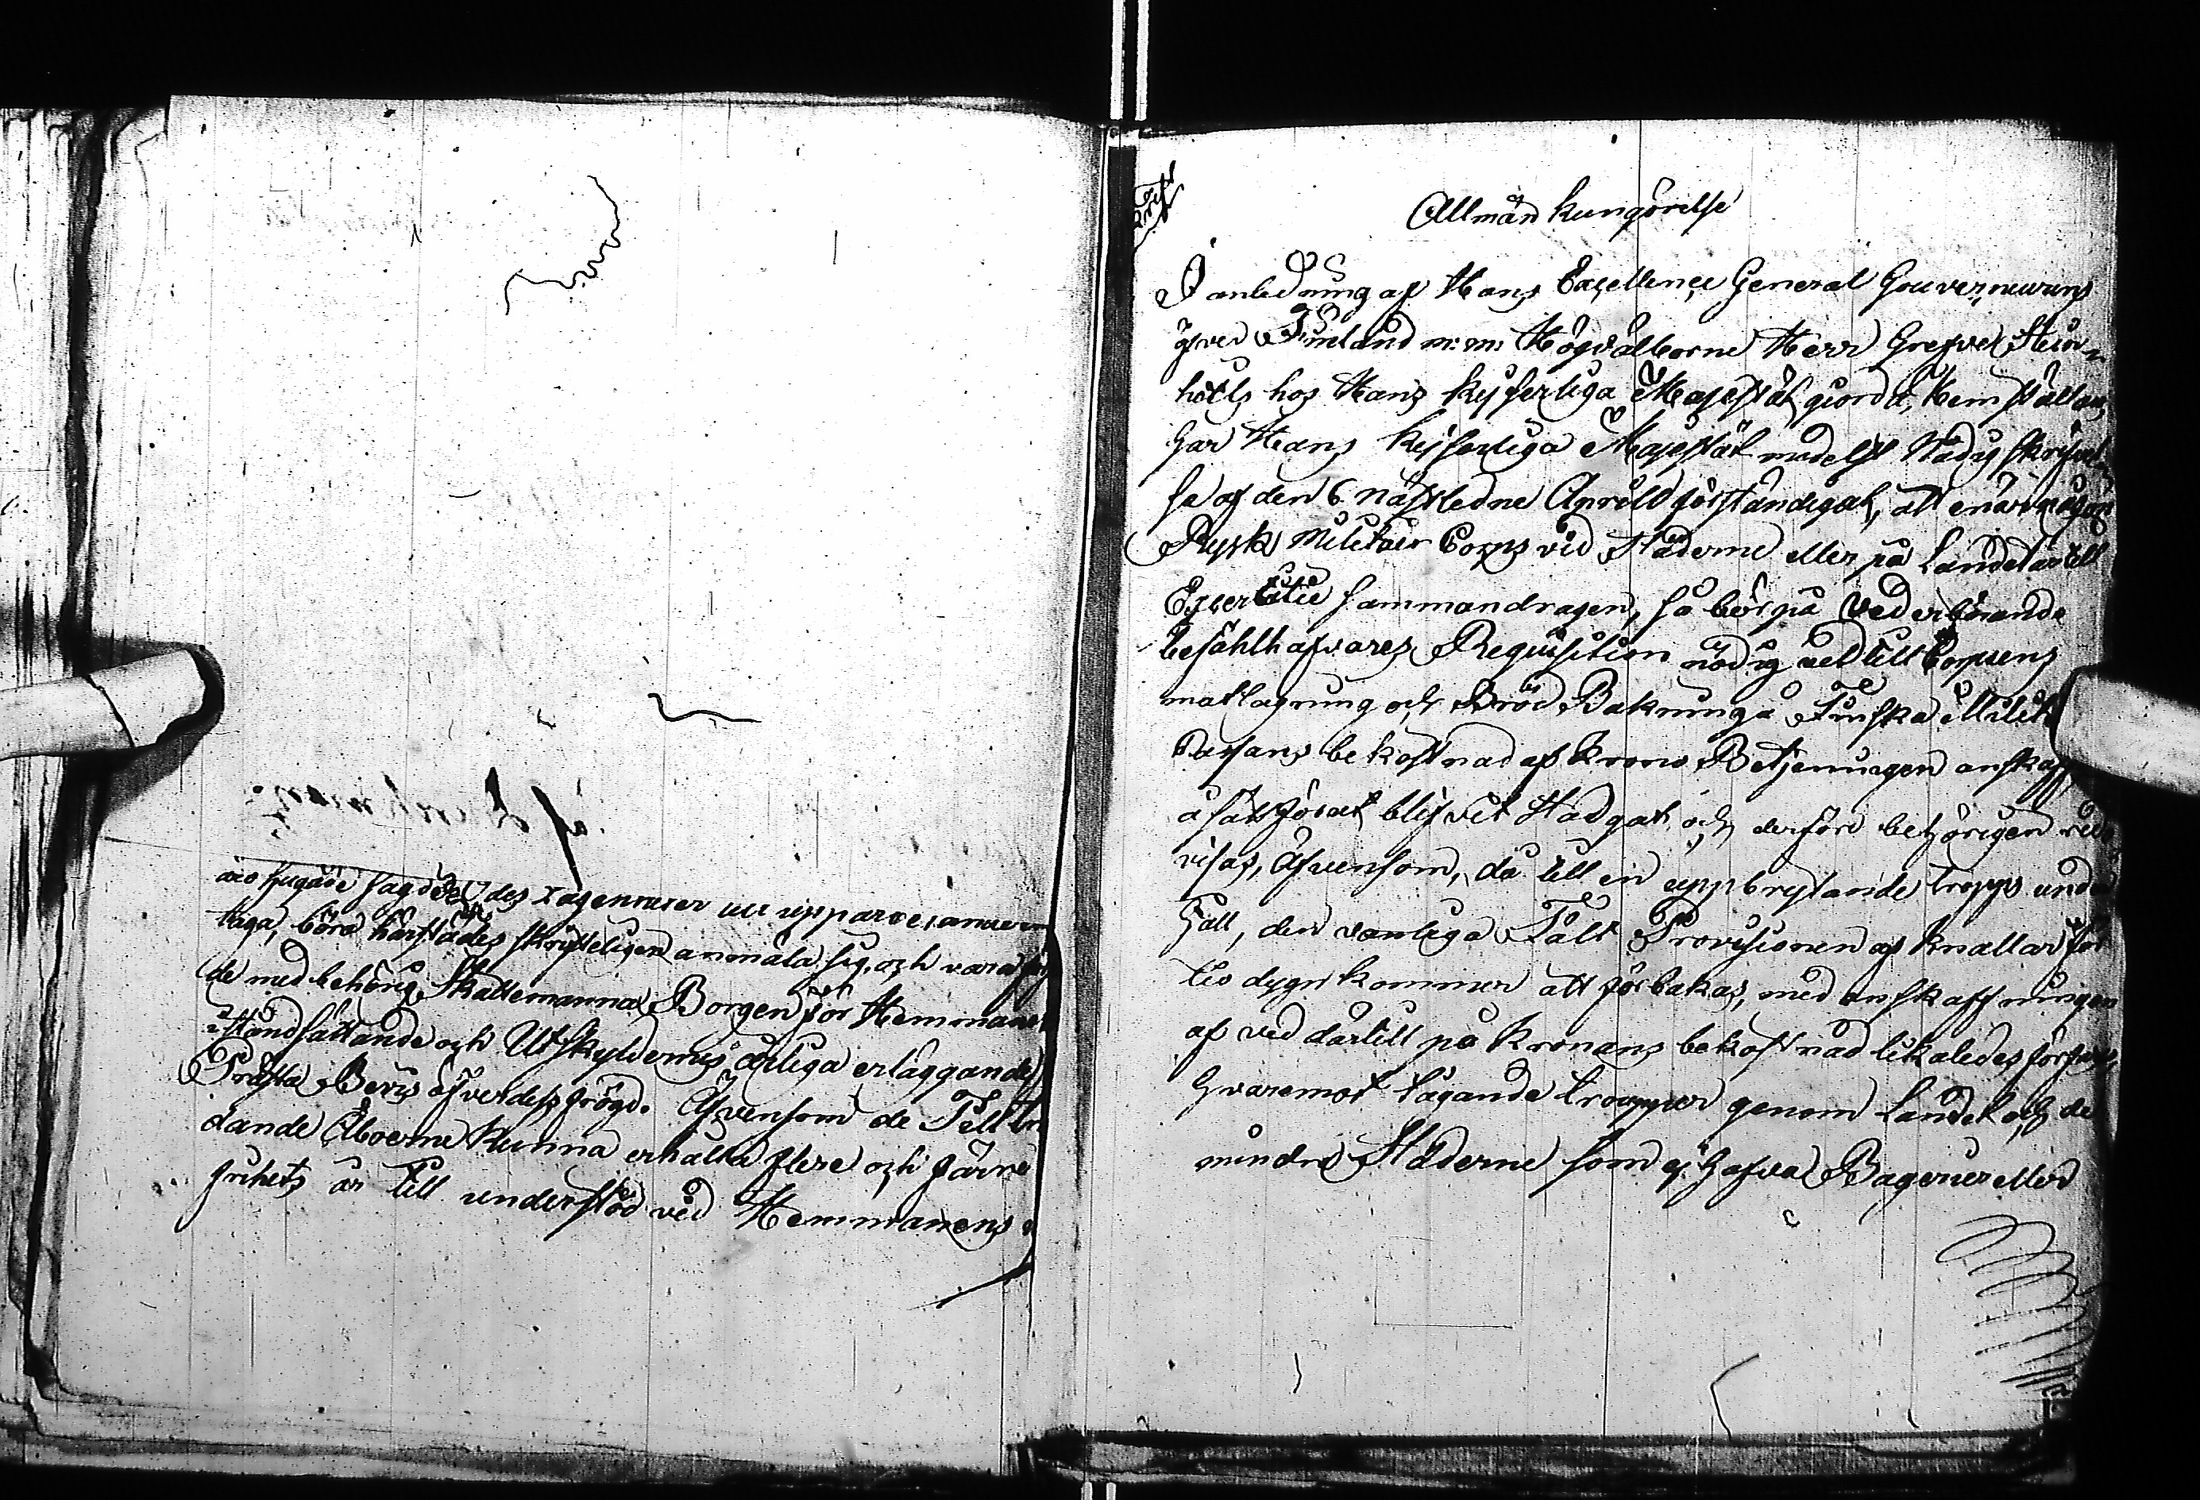 hugade
taga, böra härstädes skrifteligen anmäla sig, och vara
de med behörig Skattemanna Borgen för Hemmanets
iståndsättande och Utskyldernes årliga erläggande
Präster Bevis öfver dess frögd. Äfvensom de
dande Åboerne kunna erhålla flere och färre
frihets år till understöd vid Hemmanens
Allmän kungörelse
I anledning af Hans Excellence General Gouverneurens
öfver Finland m: m: Högvälborne Herr Grefve Stein-
heils hos Hans Kejserliga Majestät giorde hemställan,
har Hans Kejserliga Majestät medelst Nådig skrifvel-
se af den 6 nästledne Aprill förståndigat, att enär någon
Rysk Militair Corps vid Städerne eller på Landet är till
Exercitie sammandragen, så bör på vederbörande
befählhafvares Requisition nödig ved till Corpsens
matlagning och Bröd Bakning å Finska Militie
Cassans bekostnad af Krono Betjeningen anskaffas
å sätt förut blifvit Stadgat och derföre behörigen redo
visas, Äfvensom, då till en uppbrytande tropps under
håll, den vanliga Fält Provisionen af knallar för
tio dygn kommer att förbakas, med anskaffningen
af ved dertill på Kronans bekostnad likaledes förfares,
hvaremot tågande troupper genom Landet och de
mindre Städerne som ej hafva Bagerier eller